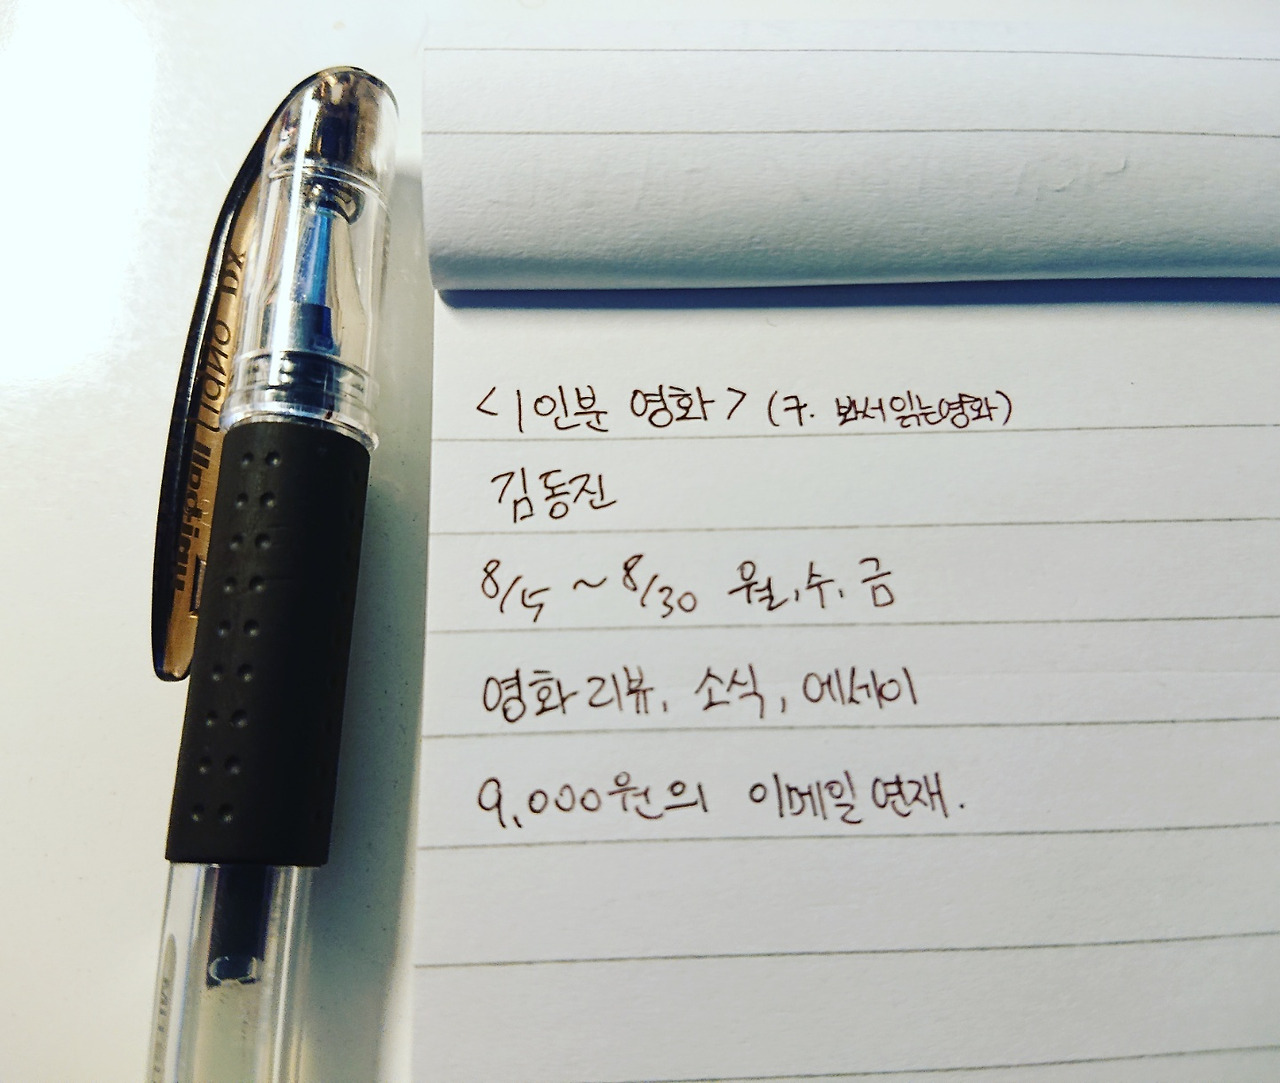 <1인분 영화> (구. 봐서읽는영화)
김동진
8/5 ~ 8/30 월, 수, 금
영화리뷰, 소식, 에세이
9,000원의 이메일 연재.
uni-ball Signo
DX